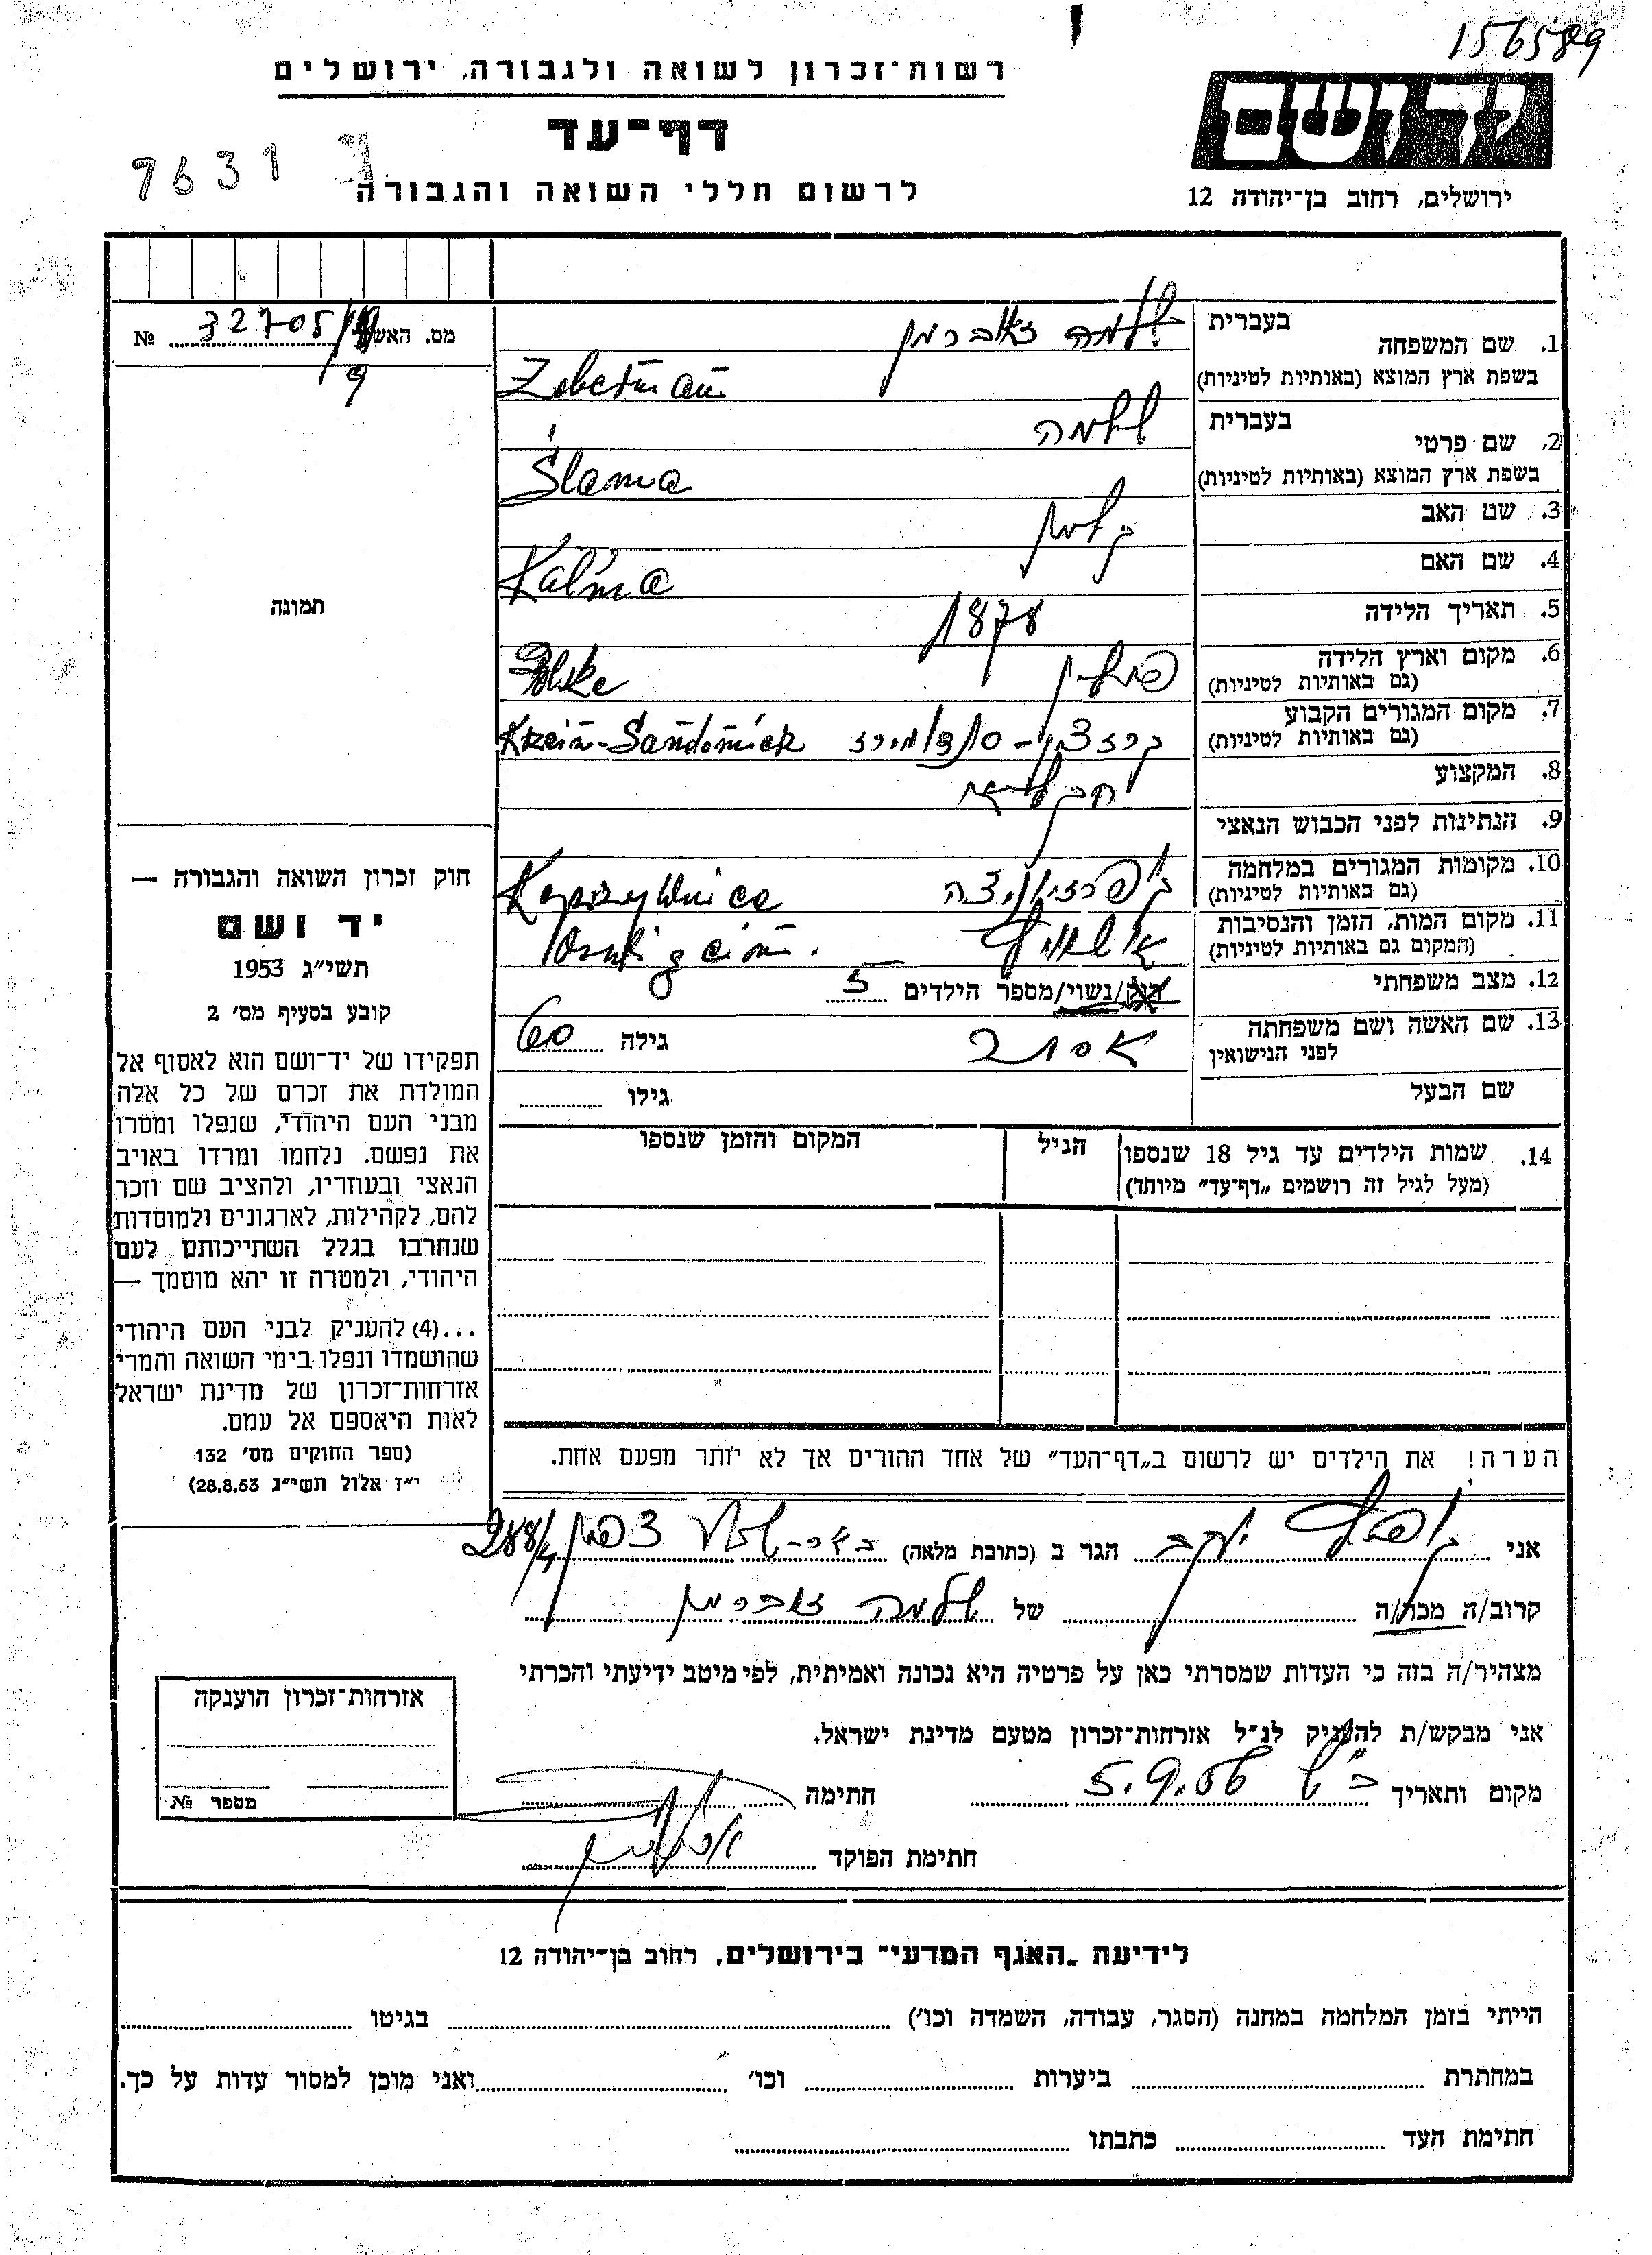 156589
רשות־זכרון לשואה ולגבורה, ירושלים
יד ושם
דף־עד
7631
לרשום חללי השואה והגבורה
ירושלים, רחוב בן־יהודה 12
מס. האשה 32705/ № 9
1. שם המשפחה בעברית שלמה זאברמן
בשפת ארץ המוצא (באותיות לטיניות) Zeberman
2. שם פרטי בעברית שלמה
בשפת ארץ המוצא (באותיות לטיניות) Ślama
3. שם האב קלמן
4. שם האם Kalma
5. תאריך הלידה 1878
6. מקום וארץ הלידה פולין
(גם באותיות לטיניות) Polske
7. מקום המגורים הקבוע
(גם באותיות לטיניות) Krein-Sandomierz
8. המקצוע חקלאי
9. הנתינות לפני הכבוש הנאצי
10. מקומות המגורים במלחמה
(גם באותיות לטיניות) Koprzywnica קופרזיוניצה
11. מקום המות, הזמן והנסיבות
(המקום גם באותיות לטיניות)
12. מצב משפחתי רווק/נשוי/מספר הילדים 5
13. שם האשה ושם משפחתה אסתר גילה 60
לפני הנישואין
שם הבעל גילו
14. שמות הילדים עד גיל 18 שנספו הגיל המקום והזמן שנספו
(מעל לגיל זה רושמים „דף־עד" מיוחד)
תמונה
חוק זכרון השואה והגבורה —
יד ושם
תשי״ג 1953
קובע בסעיף מס׳ 2
תפקידו של יד־ושם הוא לאסוף אל
המולדת את זכרם של כל אלה
מבני העם היהודי, שנפלו ומסרו
את נפשם. נלחמו ומרדו באויב
הנאצי ובעוזריו, ולהציב שם וזכר
להם, לקהילות, לארגונים ולמוסדות
שנחרבו בגלל השתייכותם לעם
היהודי, ולמטרה זו יהא מוסמך —
...(4) להעניק לבני העם היהודי
שהושמדו ונפלו בימי השואה והמרי
אזרחות־זכרון של מדינת ישראל
לאות היאספם אל עמם.
(ספר החוקים מס׳ 132
י״ז אלול תשי״ג 28.8.53)
הערה! את הילדים יש לרשום ב„דף־העד" של אחד ההורים אך לא יותר מפעם אחת.
אני יעקב הגר ב (כתובת מלאה) באר-שבע צפון 288/4
קרוב/ה מכר/ה של שלמה זאברמן
מצהיר/ה בזה כי העדות שמסרתי כאן על פרטיה היא נכונה ואמיתית, לפי מיטב ידיעתי והכרתי
אני מבקש/ת להעניק לנ״ל אזרחות־זכרון מטעם מדינת ישראל.
מקום ותאריך ב״ש 5.9.56 חתימה
חתימת הפוקד
אזרחות־זכרון הוענקה
מספר №
לידיעת „האגף המדעי" בירושלים, רחוב בן־יהודה 12
הייתי בזמן המלחמה במחנה (הסגר, עבודה, השמדה וכו׳) בגיטו
במחתרת ביערות וכו׳ ואני מוכן למסור עדות על כך.
חתימת העד כתבתו